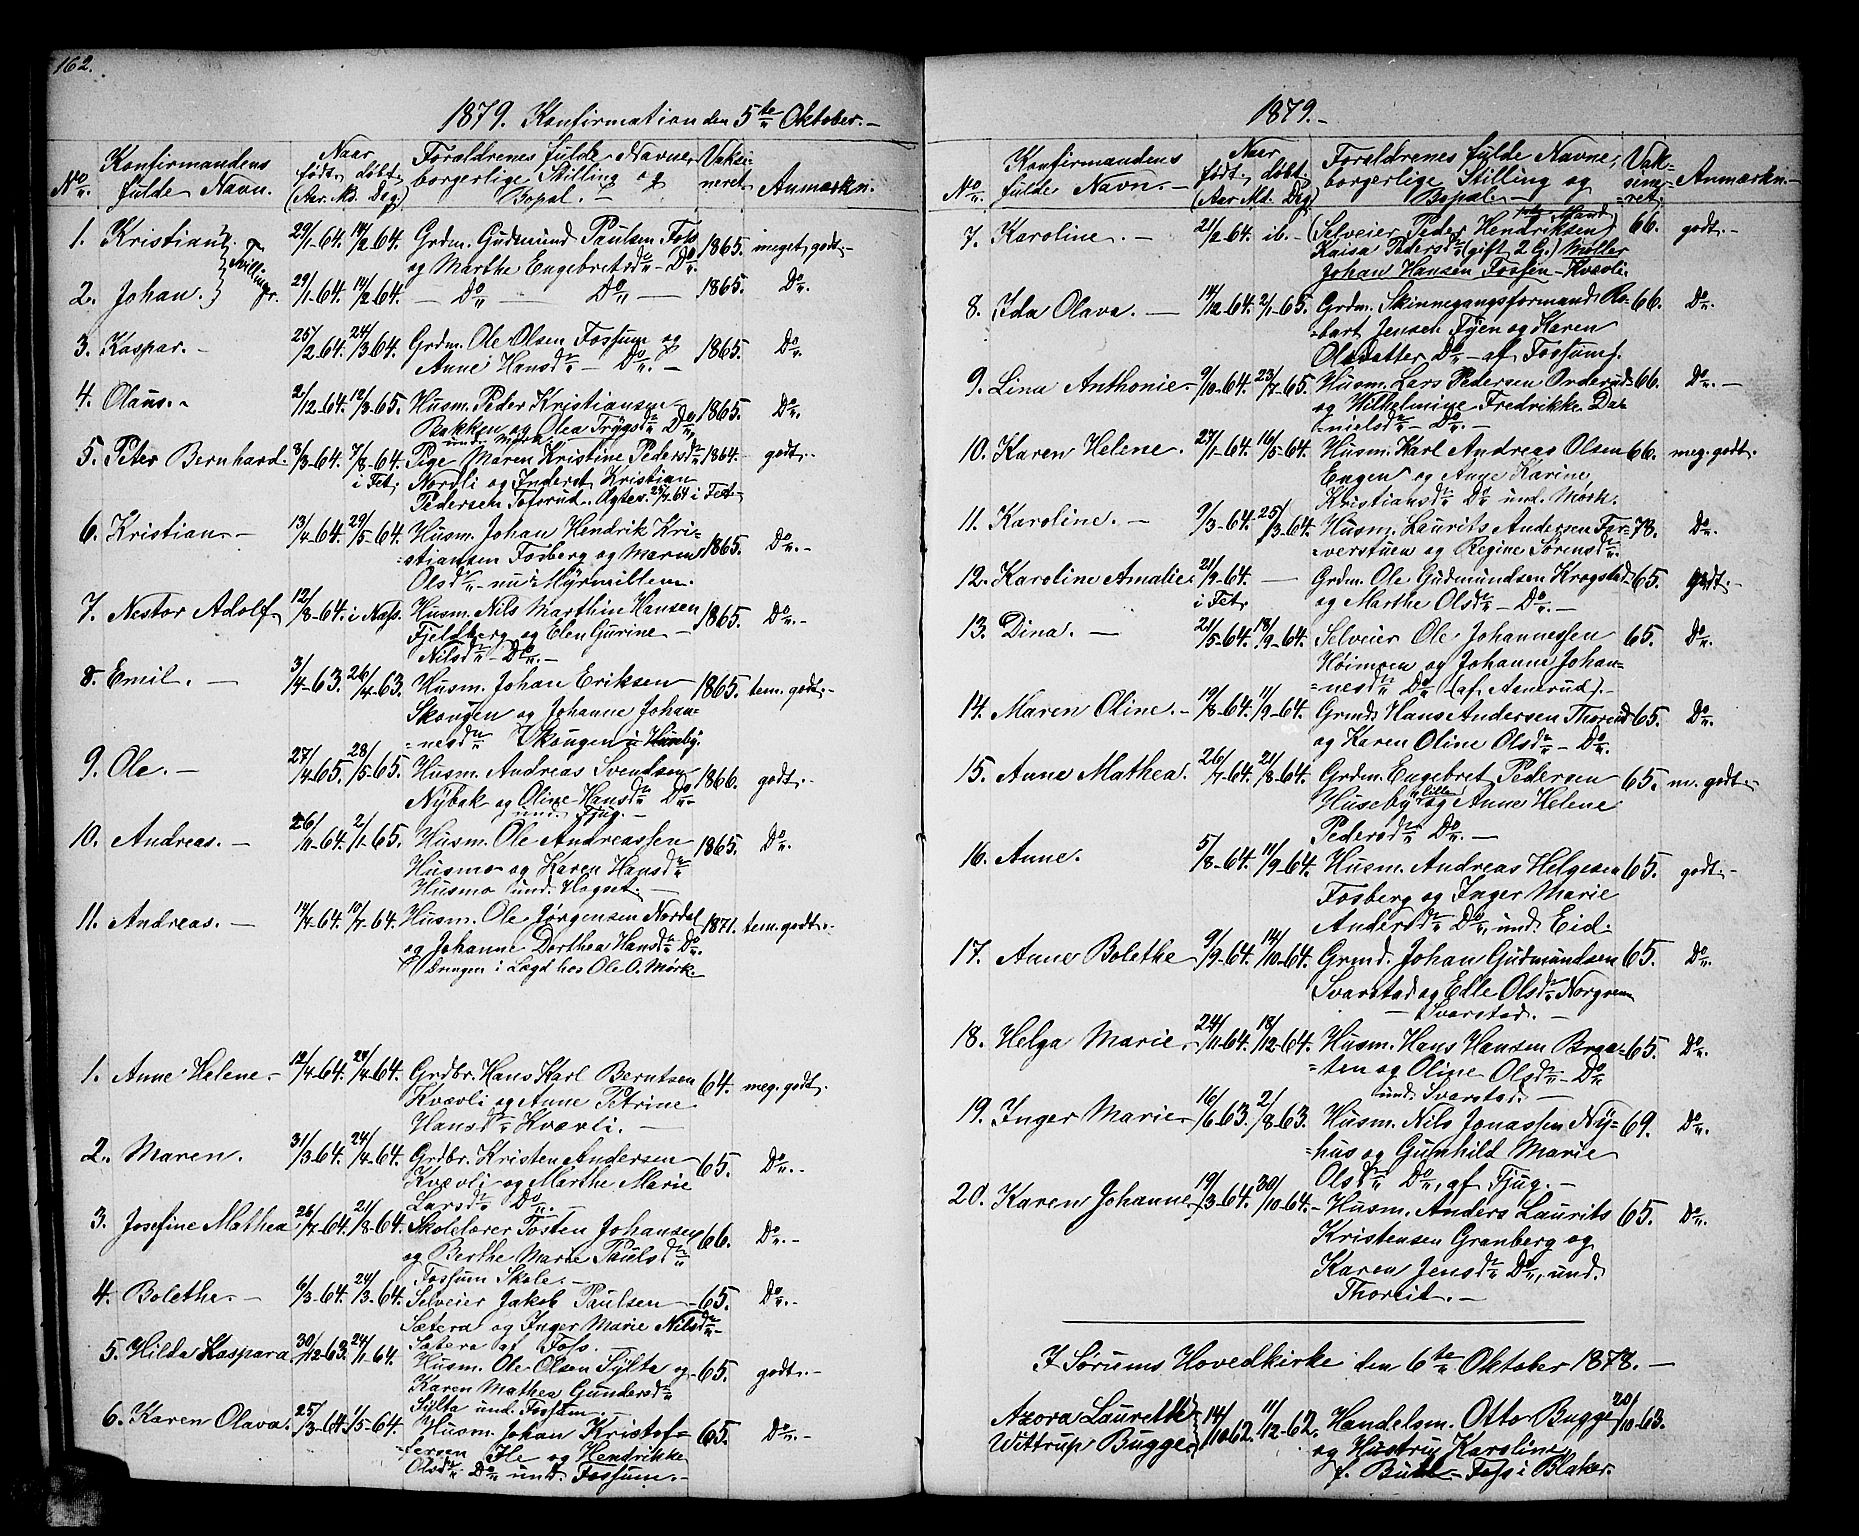 162.
1879. Konfirmation den 5te Oktober. -
No. Konfirmandens fulde Navn. Naar født, døbt, (Aar. Md. Dag) Forældrenes fulde Navne, borgerlige Stilling og Bopæl. - Vaksineret Anmærkn.
1. Kristian. } Tvillinger. 29/1-64. 14/2-64. Grdm. Gudmund Paulsen Foss 1865. meget godt. -
og Marthe Engebretsdr. - Do.
2. Johan. } 29/1-64. 14/2-64. - Do. Do. - 1865. Do.
3. Kaspar. - 25/2-64. 24/3-64. Grdm. Ole Olsen Fossum og 1865. Do.
Anne Hansdr. - Do. -
4. Olaus. - 2/12-64. 12/3-65. Husm. Peder Kristiansen 1865. Do.
Bakken og Olea Trygsdr. Do.
und. Mørk.
5. Peter Bernhard. 8/3-64. 7/8-64. i Fet. Pige Maren Kristine Pedersdr. 1864. godt. -
Nordli og Inderst Kristian
Pedersen Tofsrud. Agter. 25/7-64 i Fet.
6. Kristian - 13/4-64. 29/5-64. Husm. Johan Hendrik Kri- 1865. Do. -
stiansen Fosberg og Maren
Olsdr. - nu Myrmillem.
7. Nestor Adolf 12/8-64. i Nass. Husm. Nils Marthin Hansen 1865. Do. -
Fjeldberg og Elen Gurine -
Nilsdr. - Do. -
8. Emil. - 3/4-63. 26/4-63. Husm. Johan Eriksen 1865. tem. godt. -
Skougen og Johanne Johan-
nesdr. Skougen u. Huseby.
9. Ole. - 27/4-65. 28/5-65. Husm. Andreas Svendsen 1866. godt. -
Nybak og Oline Hansdr. Do.
und. Fjug. -
10. Andreas. - 26/11-64. 2/1-65. Husm. Ole Andreassen 1865. Do.
Husmo og Karen Hansdr.
Husmo und. Hogset. -
11. Andreas. - 14/4-64. 10/7-64. Husm. Ole Jørgensen Nordal 1871. tem. godt. -
og Johanne Dorthea Hansdr. Do.
Drengen i Lægd hos Ole O. Mørk
1. Anne Helene. - 12/4-64. 24/4-64. Grdbr. Hans Karl Berntsen 64. meg. godt.
Kvævli og Anne Petrine
Hansdr. Kvævli. -
2. Maren. 31/3-64. 24/4-64. Grdbr. Kristen Andersen 65. Do. -
Kvævli og Marthe Marie
Larsdr. Do. -
3. Josefine Mathea 26/7-64. 21/8-64. Skolelærer Tosten Johansen 66. Do. -
og Berthe Marie Paulsdr.
Fossum Skole. -
4. Bolethe. - 6/3-64. 24/3-64. Selveier Jakob Paulsen 65. Do. -
Sætera og Inger Marie Nilsdr.
Sætera af Foss.
5. Hilda Kaspara. 30/12-63. 24/1-64. Husm. Ole Olsen Sylta og 65. godt. -
Karen Mathea Gundersdr.
Sylta und. Fossum. -
6. Karen Olava. 25/3-64. 1/5-64. Husm. Johan Kristof- 65. Do. -
fersen Ile og Hendrikke
Olsdr. Do. und. Fossum. -
1879. -
No. Konfirmandens fulde Navn. - Naar født, døbt. (Aar Md. Dag) Forældrenes fulde Navne, borgerlige Stilling og Bopæl. - Vaksineret. Anmærkn. -
7. Karoline. - 21/2-64. ib. - (Selveier Peder Hendriksen) 66. godt. -
Kaisa Pedersdr. (gift 2 G.) Møller
Johan Hansen Fossen - Kvævli.
8. Ida Olava. - 14/12-64. 2/1-65. Grdm. Skinnegangsformand Ro- 66. Do.
bart Jensen Fyen og Karen
Olsdatter Do. - af Fossum.
9. Lina Anthonie - 9/10-64. 23/7-65. Husm. Lars Pedersen Orderud 66. Do. -
og Wilhelmine Fredrikke Da-
nielsdr. - Do. -
10. Karen Helene. 27/1-64. 16/5-64. Husm. Karl Andreas Olsen 66. meg. godt.
Engen og Anne Karine
Kristiansdr. Do. und. Mørk.
11. Karoline. - 9/3-64. 25/3-64. Husm. Laurits Andersen Far- 78. Do.
verstuen og Regine Sørensdr.
12. Karoline Amalie 21/9-64. i Fet. - Grdm. Ole Gudmundsen Krogstad 65. godt. -
og Marthe Olsdr. - Do. -
13. Dina. - 21/5-64. 18/9-64. Selveier Ole Johannessen 65. Do.
Høimoen og Johanne Johan-
nesdr. Do. (af Asmrud). -
14. Maren Oline. - 19/8-64. 11/9-64. Grmd. Hans Andersen Thorrud 65. Do.
og Karen Oline Olsdr. - Do.
15. Anne Mathea. 26/7-64. 21/8-64. Grdm. Engebret Pedersen 65. m. godt. -
Huseby lille og Anne Helene
Pedersdr. Do. -
16. Anne. 5/8-64. 11/9-64. Husm. Andreas Helgesen 65. godt. -
Fosberg og Inger Marie
Andersdr. Do. und. Eid.
17. Anne Bolethe 9/9-64. 14/10-64. Grmd. Johan Gudmundsen 65. Do.
Svarstad og Edle Olsdr. Norgren
- Svarstad. -
18. Helga Marie. 24/11-64. 18/12-64. Husm. Hans Hansen Braa- 65. Do.
ten og Oline Olsdr. - Do.
und. Svarstad. -
19. Inger Marie 16/6-63. 2/8-63. Husm. Nils Jonassen Ny- 69. Do.
hus og Gunhild Marie
Olsdr. Do. af Fjug. -
20. Karen Johanne 19/3-64. 30/10-64. - Husm. Anders Laurits 65. Do.
Kristensen Granberg og
Karen Jensdr. Do. und.
Thoreit. -
I Sørums Hovedkirke den 6te Oktober 1878. -
Azora Laurette 14/10-62. 11/12-62. Handelsm. Otto Bugge 20/10-63.
Wittrup Bugge og Hustru Karoline
f. Buth - Foss i Blaker.